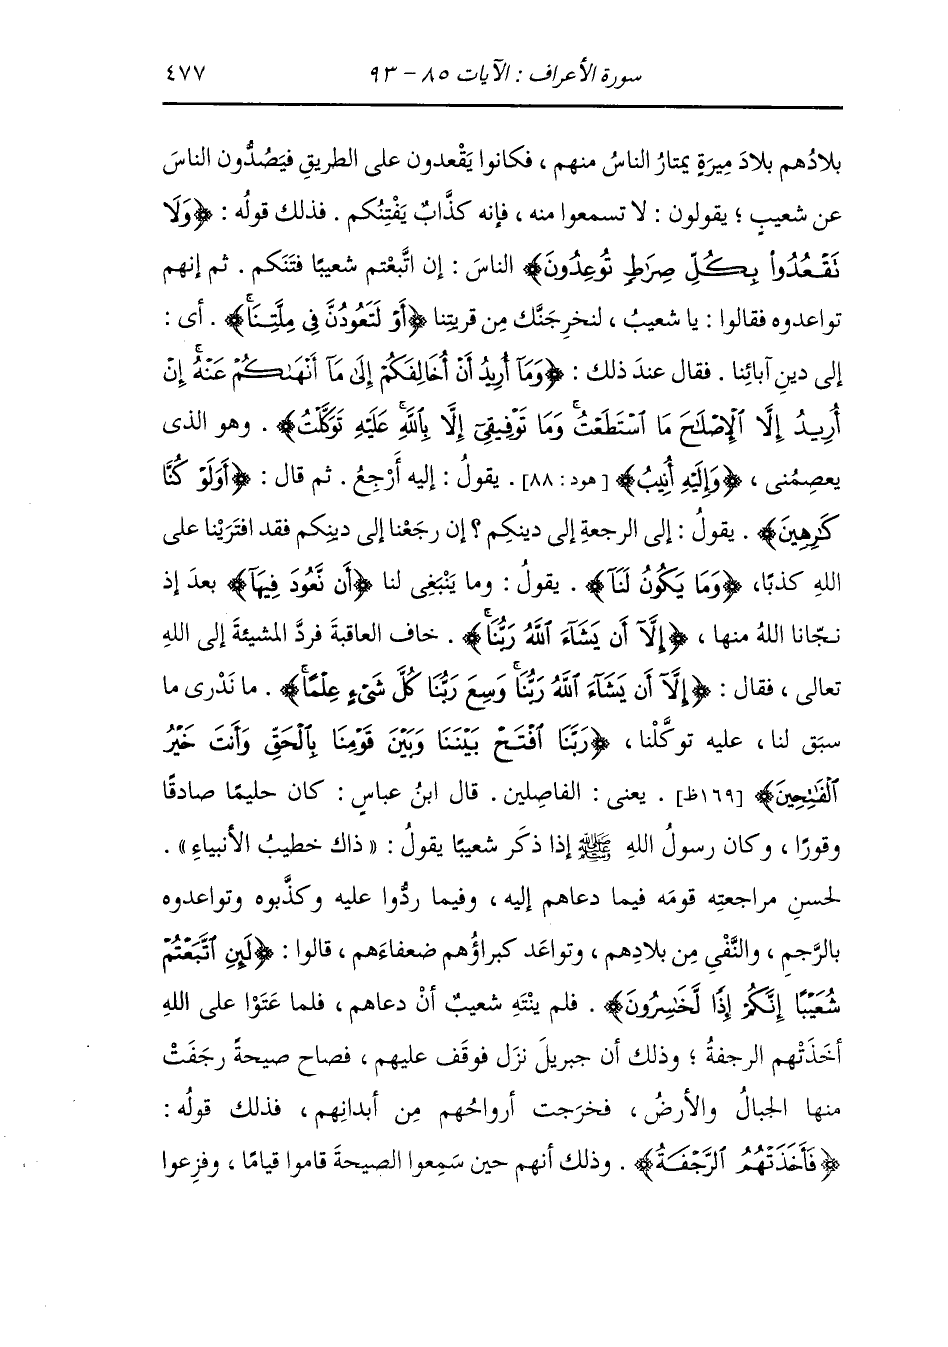 سورة الأعراف : الآيات ٨٥ - ٩٣
٤٧٧
بلادُهم بلادَ مِيرَةٍ يمتارُ الناسُ منهم ، فكانوا يَقْعدون على الطريقِ فيَصُدُّون الناسَ
عن شعيبٍ ؛ يقولون : لا تسمعوا منه ، فإنه كذَّابٌ يَفْتِنُكم . فذلك قولُه : ﴿وَلَا
نَقْعُدُوا۟ بِكُلِّ صِرَٰطٍ تُوعِدُونَ﴾ الناسَ : إن اتَّبعْتم شعيبًا فتَنَكم . ثم إنهم
تواعدوه فقالوا : يا شعيبُ ، لنخرِجَنَّك مِن قريتِنا ﴿أَوْ لَتَعُودُنَّ فِى مِلَّتِنَاۚ﴾ . أى :
إلى دينِ آبائِنا . فقال عندَ ذلك : ﴿وَمَآ أُرِيدُ أَنْ أُخَالِفَكُمْ إِلَىٰ مَآ أَنْهَىٰكُمْ عَنْهُۚ إِنْ
أُرِيدُ إِلَّا ٱلْإِصْلَٰحَ مَا ٱسْتَطَعْتُۚ وَمَا تَوْفِيقِىٓ إِلَّا بِٱللَّهِۚ عَلَيْهِ تَوَكَّلْتُ﴾ . وهو الذى
يعصِمُنى ، ﴿وَإِلَيْهِ أُنِيبُ﴾ [هود: ٨٨] . يقولُ : إليه أَرْجِعُ . ثم قال : ﴿أَوَلَوْ كُنَّا
كَٰرِهِينَ﴾ . يقولُ : إلى الرجعةِ إلى دينِكم ؟ إن رجَعْنا إلى دينِكم فقد افتَرَيْنا على
اللهِ كذبًا، ﴿وَمَا يَكُونُ لَنَآ﴾ . يقولُ : وما يَنْبَغِى لنا ﴿أَن نَّعُودَ فِيهَآ﴾ بعدَ إذ
نجّانا اللهُ منها ، ﴿إِلَّآ أَن يَشَآءَ ٱللَّهُ رَبُّنَاۚ﴾ . خاف العاقبةَ فردَّ المشيئةَ إلى اللهِ
تعالى ، فقال : ﴿إِلَّآ أَن يَشَآءَ ٱللَّهُ رَبُّنَاۚ وَسِعَ رَبُّنَا كُلَّ شَىْءٍ عِلْمًاۚ﴾ . ما نَدْرى ما
سبَق لنا، عليه توكَّلْنا، ﴿رَبَّنَا ٱفْتَحْ بَيْنَنَا وَبَيْنَ قَوْمِنَا بِٱلْحَقِّ وَأَنتَ خَيْرُ
ٱلْفَٰتِحِينَ﴾ [١٦٩ظ] . يعنى : الفاصِلين. قال ابنُ عباسٍ : كان حليمًا صادقًا
وقورًا ، وكان رسولُ اللهِ ﷺ إذا ذكَر شعيبًا يقولُ : «ذاك خطيبُ الأنبياءِ» .
لحسنِ مراجعتِه قومَه فيما دعاهم إليه، وفيما ردُّوا عليه وكذَّبوه وتواعدوه
بالرَّجمِ ، والنَّفْىِ مِن بلادِهم ، وتواعَد كبراؤُهم ضعفاءَهم ، قالوا : ﴿لَئِنِ ٱتَّبَعْتُمْ
شُعَيْبًا إِنَّكُمْ إِذًا لَّخَٰسِرُونَ﴾ . فلم ينْتَهِ شعيبٌ أنْ دعاهم ، فلما عَتَوْا على اللهِ
أخَذَتْهم الرجفةُ ؛ وذلك أن جبريلَ نزَل فوقَف عليهم ، فصاح صيحةً رجَفَتْ
منها الجبالُ والأرضُ، فخرَجت أرواحُهم مِن أبدانِهم، فذلك قولُه :
﴿فَأَخَذَتْهُمُ ٱلرَّجْفَةُ﴾ . وذلك أنهم حين سَمِعوا الصيحةَ قاموا قيامًا ، وفزِعوا